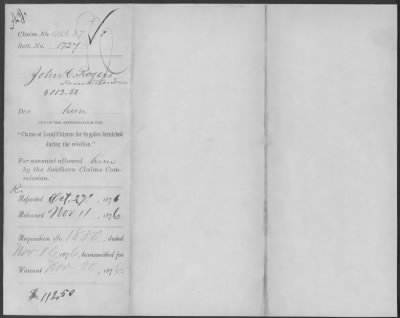 Claim No.
Sett. No. 1727
John C. Rogers
$112.50
Due him
OUT OF THE APPROPRIATION FOR
"Claims of Loyal Citizens for Supplies furnished
during the rebellion."
For amount allowed him
by the Southern Claims Com-
mission.
R.
Reported Oct. 27, 1876
Returned Nov 11, 1876
Requisition No. 1880, dated
Nov 16, 1876, transmitted for
Warrant Nov 20, 1876
$112.50